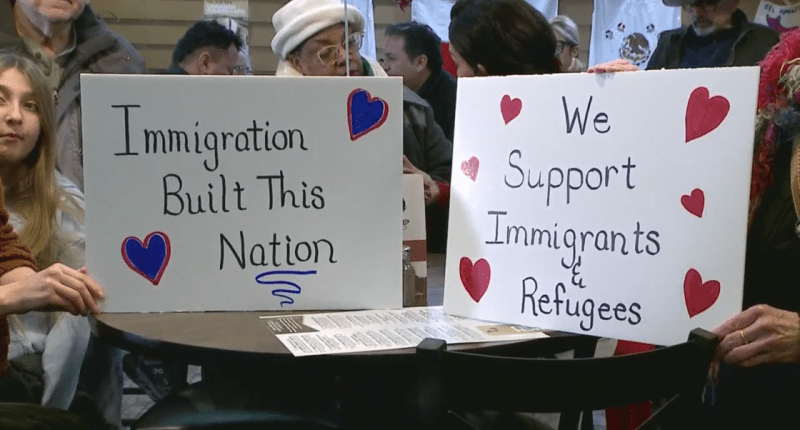 Immigration
Built This
Nation
We
Support
Immigrants
&
Refugees